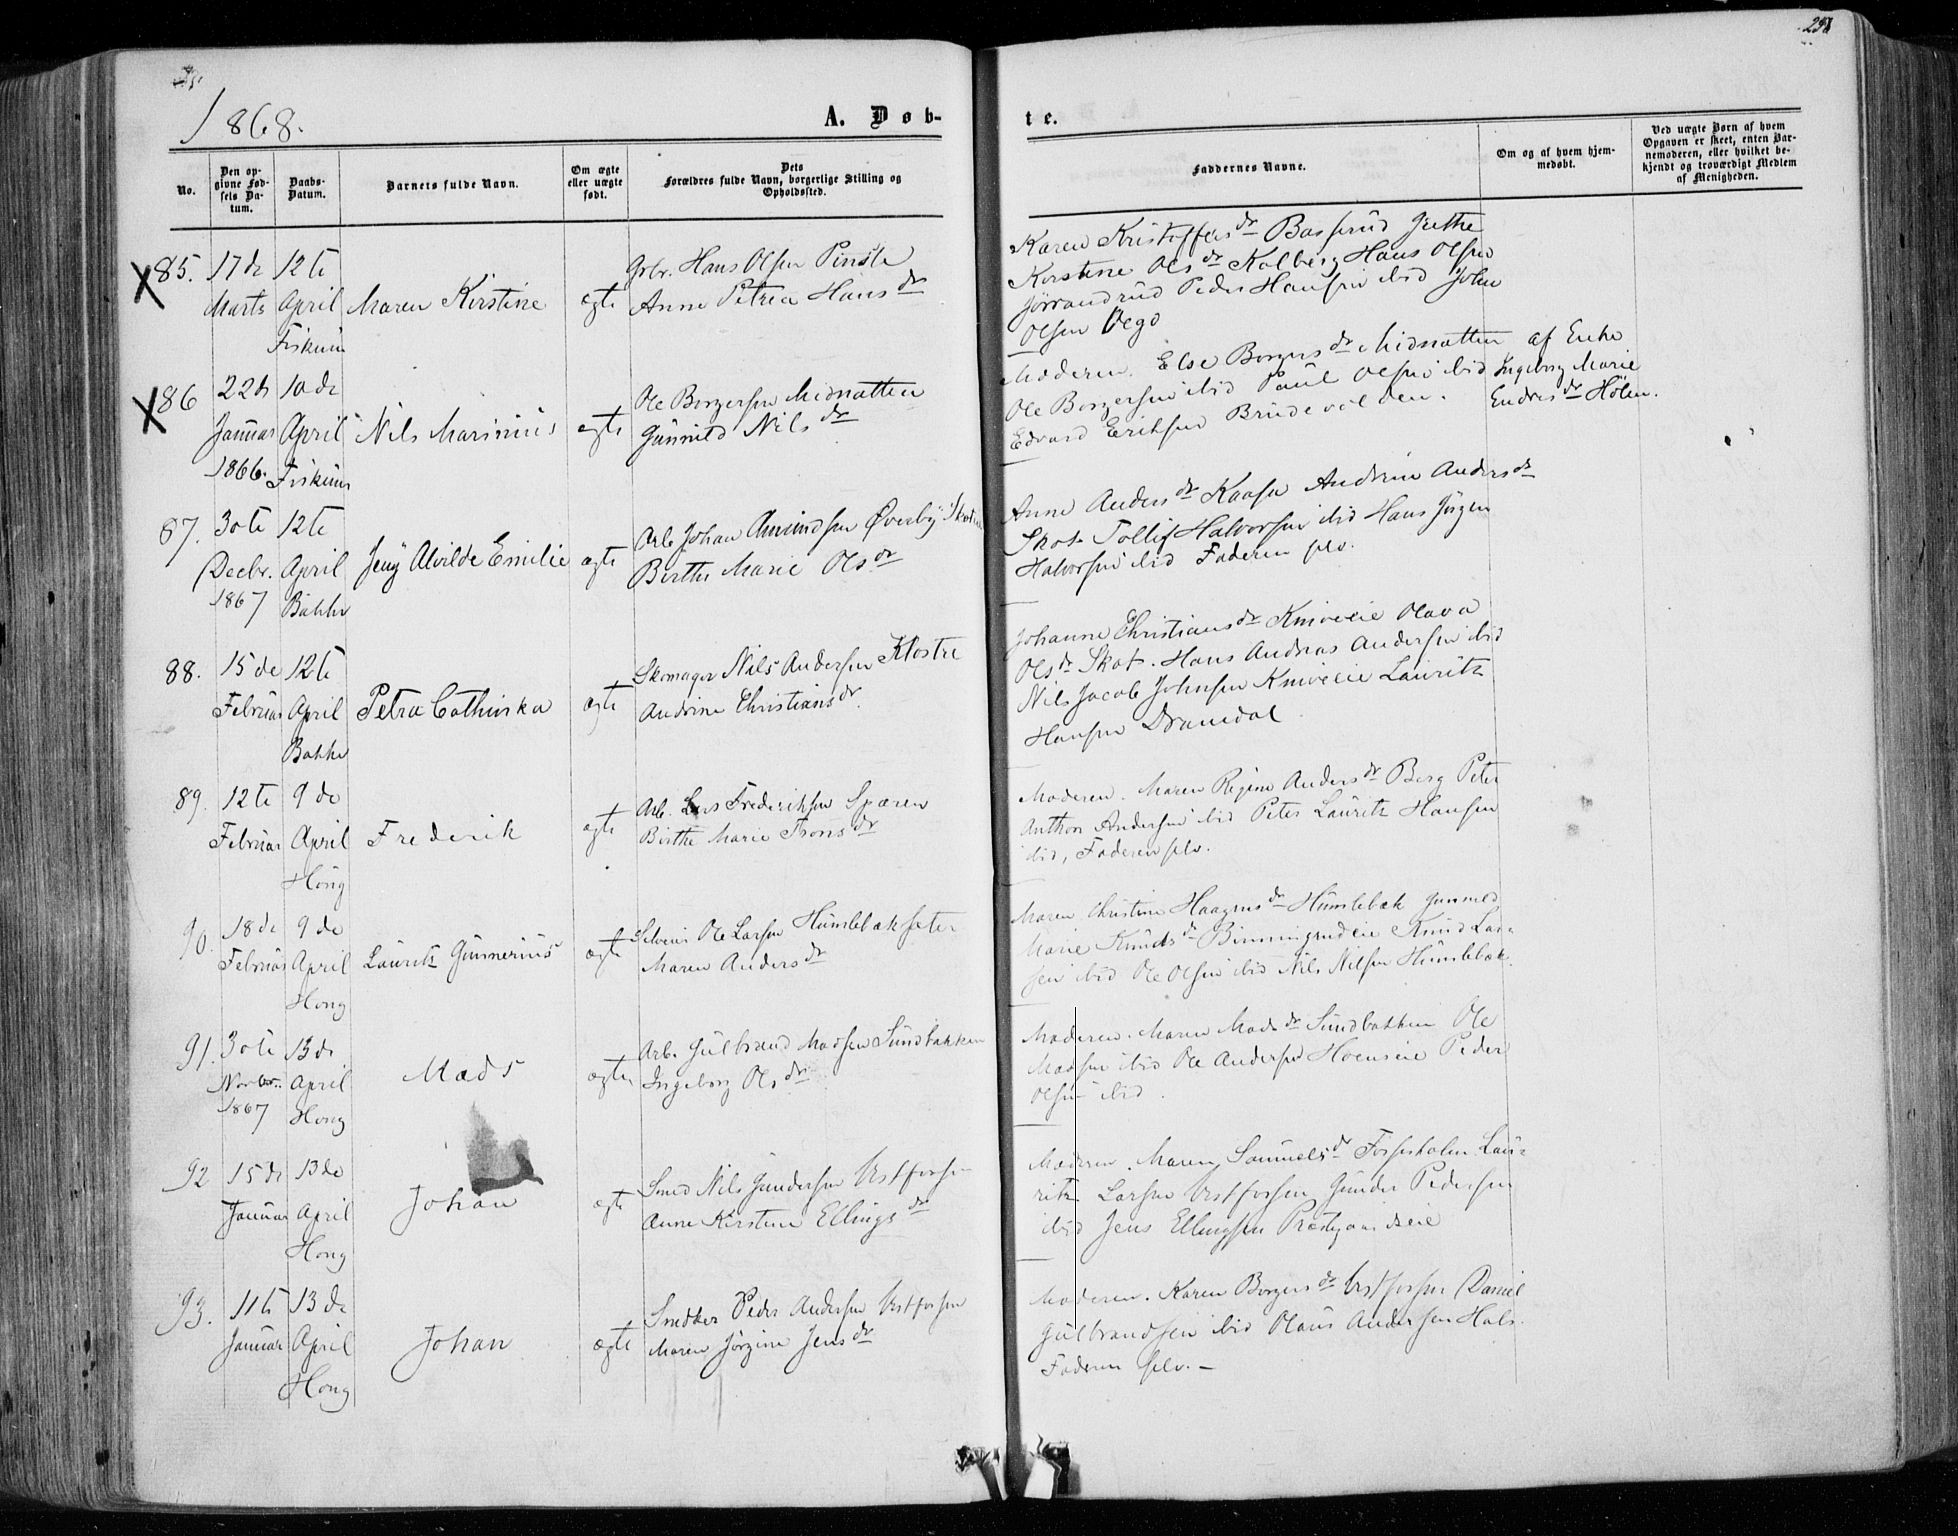 251
1868.
A. Døb-
te.
No.
Den op-
givne Fød-
sels Da-
tum.
Daabs-
Datum.
Barnets fulde Navn.
Om ægte
eller uægte
født.
Dets
Forældres fulde Navn, borgerlige Stilling og
Opholdssted.
Faddernes Navne.
Om og af hvem hjem-
medøbt.
Ved uægte Børn af hvem
Opgaven er skeet, enten Bar-
nemoderen, eller hvilket be-
kjendt og troværdigt Medlem
af Menigheden.
X 85. 17de 12te
Marts April
Fiskum
Maren Kirstine
ægte
Grbr. Hans Olsen Pinsle
Anne Petrea Hansdr
Karen Kristoffersdr Basserud Grethe
Kirstine Olsdr Kolberg Hans Olsen
Jørrandrud Peder Hansen ibid John
Olsen Vego
X 86 22de 10de
Januar April
1866. Fiskum
Nils Marinius
ægte
Ole Borgersen Midnatten
Gunnild Nilsdr
Moderen. Else Borgersdr Midnatten
Ole Borgersen ibid Paul Olsen ibid
Edvard Eriksen Brudevolden.
af Enke
Ingeborg Marie
Endresdr Holen.
87. 30te 12te
Decbr. April
1867 Bakke
Jeny Alvilde Emilie
ægte
Arb. Johan Amundsen Øverby Skotsel
Birthe Marie Olsdr
Anne Andersdr Kaasa Andrine Andersdr
Skot. Tollif Halvorsen ibid Hans Jørgen
Halvorsen ibid Faderen selv.
88. 15de 12te
Februar April
Bakke
Petra Cathinka
ægte
Skomager Nils Andersen Klostre
Andrine Christiansdr.
Johanne Christiansdr Kniveeie Olava
Olsdr Skot. Hans Andreas Andersen ibid
Nils Jacob Johnsen Kniveeie Lauritz
Hansen Dramdal
89. 12te 9de
Februar April
Hong
Frederik
ægte
Arb. Lars Frederiksen Spæren
Birthe Marie Tronsdr
Moderen. Maren Regine Andersdr Berg Peter
Anthon Andersen ibid Peter Lauritz Hansen
ibid, Faderen selv.
90. 18de 9de
Februar April
Hong
Lauritz Gunnerius
ægte
Selveier Ole Larsen Humlebæksæter
Maren Andersdr
Maren Christine Haagensdr Humlebæk Gunnild
Marie Knudsdr Binningsrudeie Knud Lar-
sen ibid Ole Olsen ibid Nils Nilsen Humlebæk.
91. 30te 13de
Novbr. April
1867 Hong
Mads
ægte
Arb. Gulbrand Madsen Sundbakken
Ingeborg Olsdr
Moderen. Maren Madsdr Sundbakken Ole
Madsen ibid Ole Andersen Hoenseie Peder
Olsen ibid.
92 15de 13de
Januar April
Hong
Johan
ægte
Smed Nils Gundersen Vestfossen
Anne Kirstine Ellingsdr
Moderen. Maren Samuelsdr Fossesholm Lau-
ritz Larsen Vestfossen Gunder Pedersen
ibid Jens Ellingsen Præstgaardseie
93. 11te 13de
Januar April
Hong
Johan
ægte
Snedker Peder Andersen Vestfossen
Maren Jørgine Jensdr
Moderen. Karen Borgersdr Vestfossen Daniel
Gulbrandsen ibid Olaus Andersen Hals.
Faderen selv.-